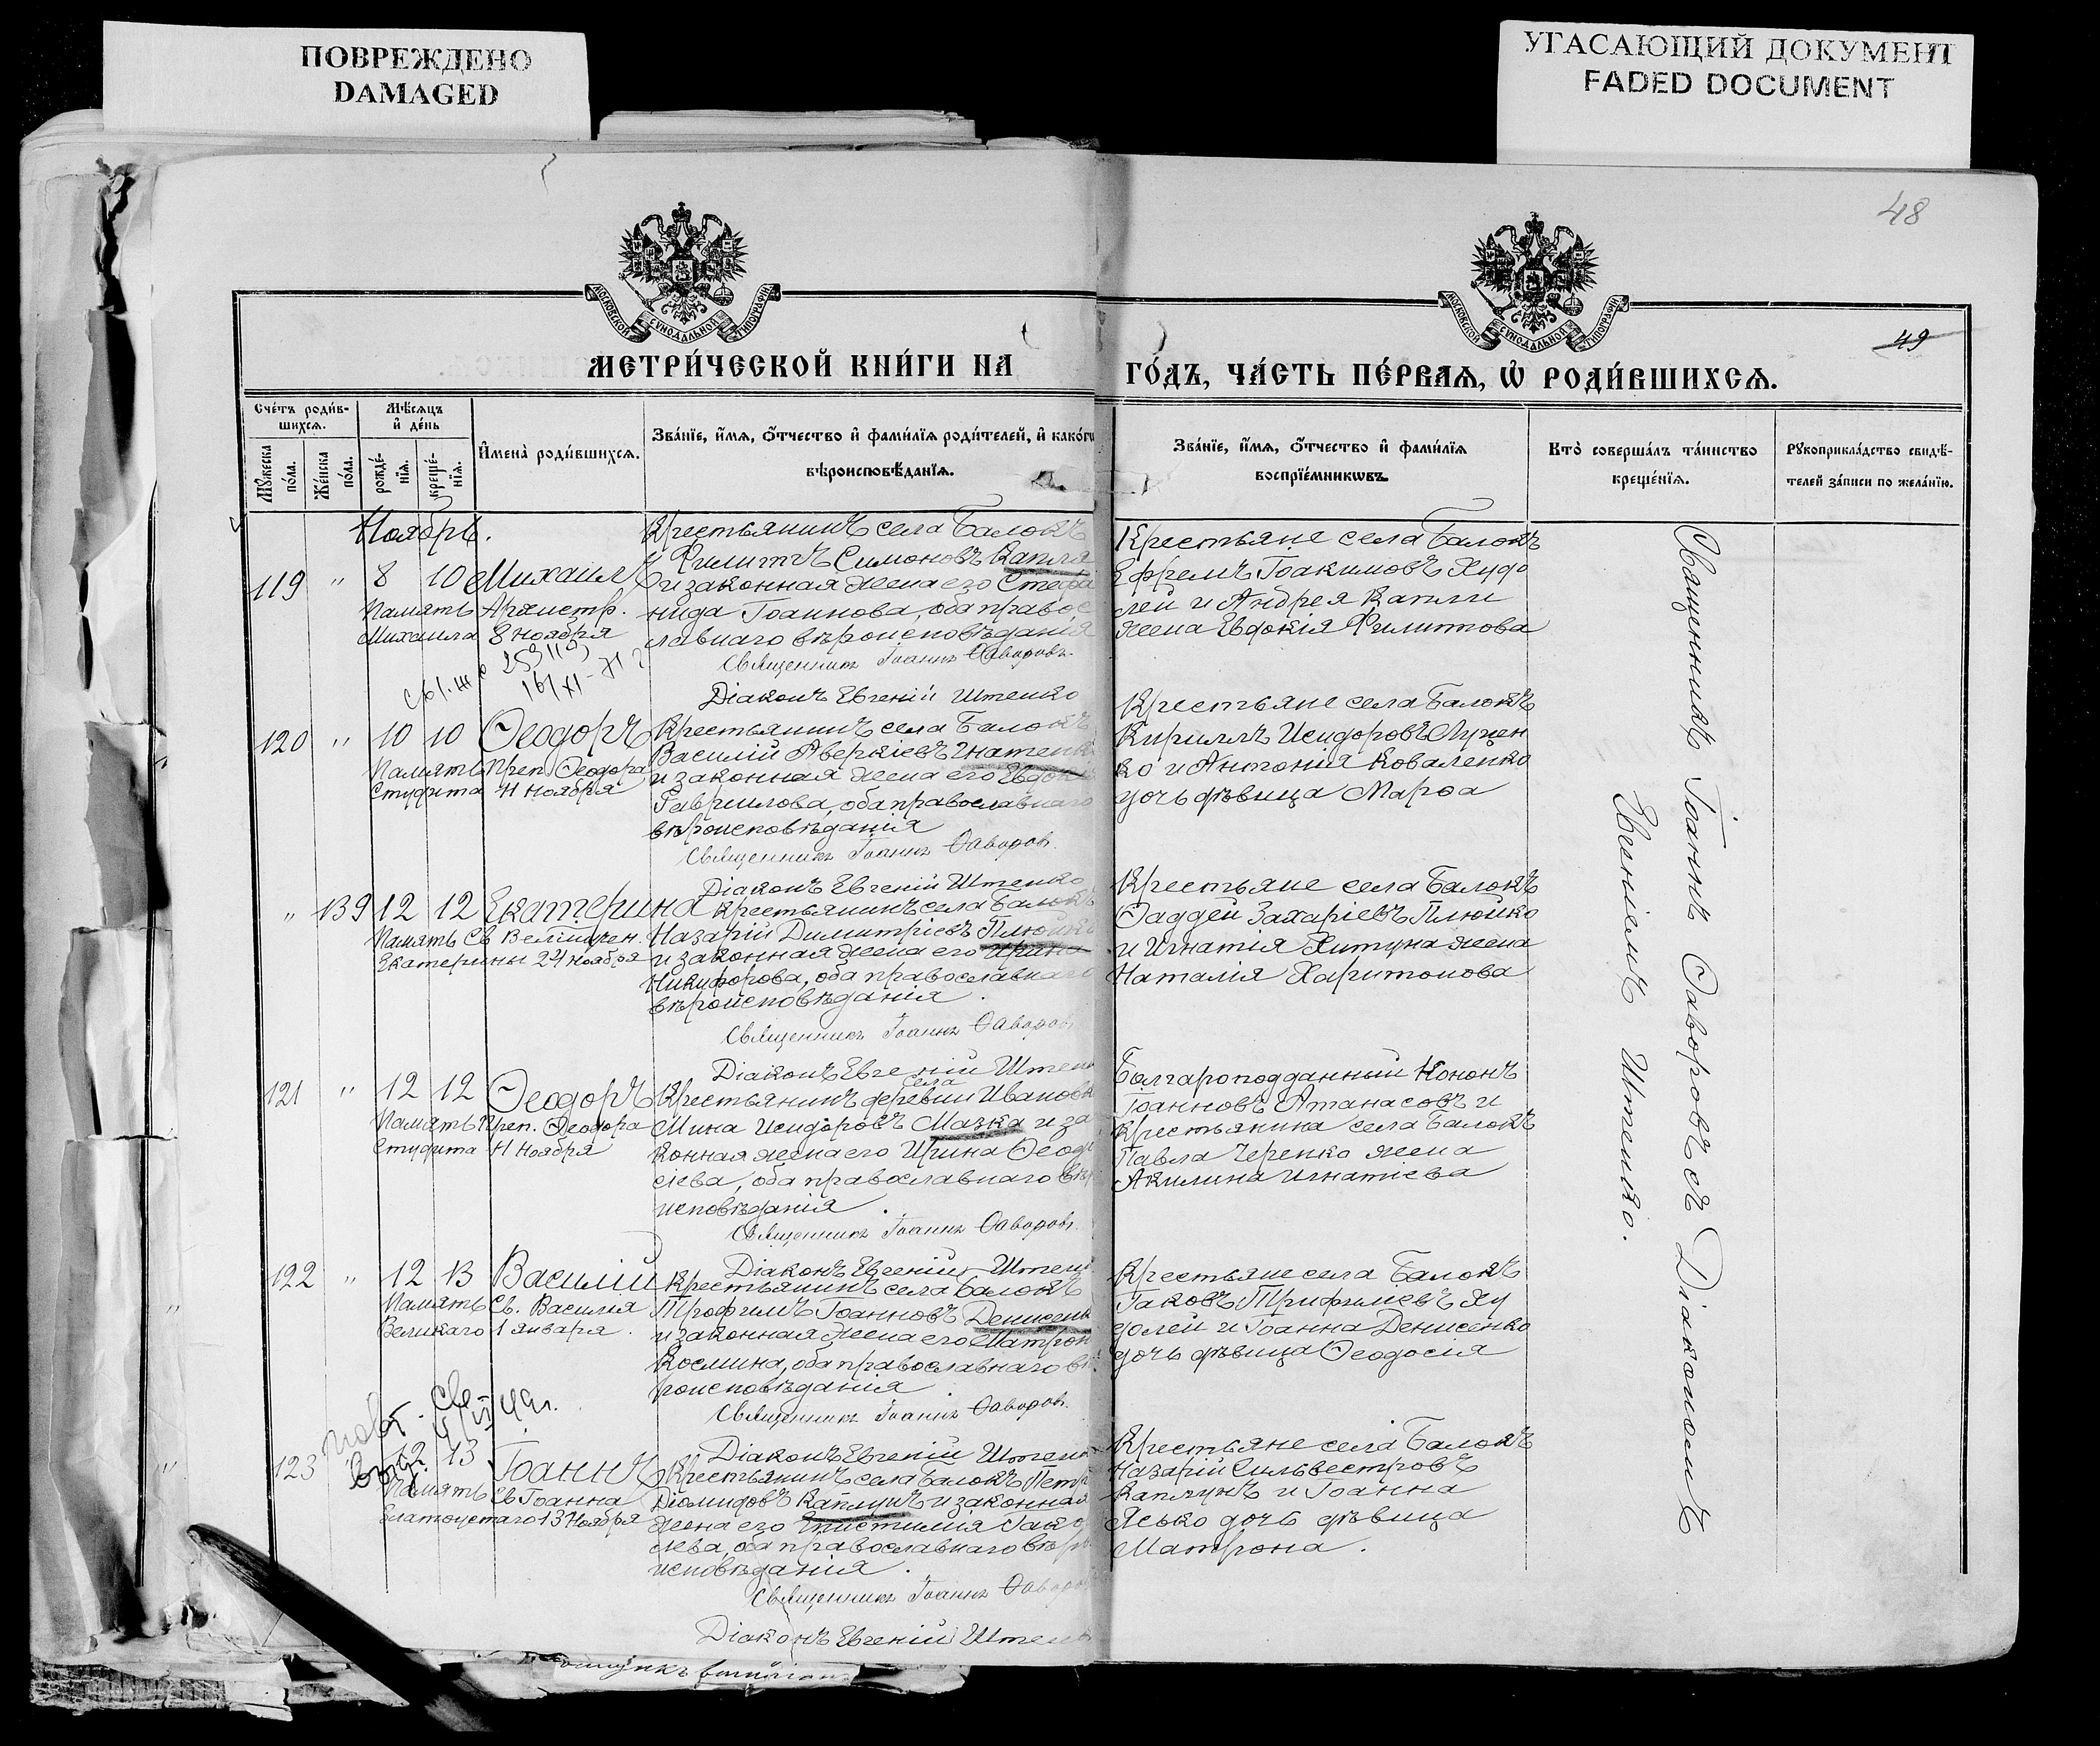 ПОВРЕЖДЕНО
DAMAGED
УГАСАЮЩИЙ ДОКУМЕНТ
FADED DOCUMENT
48
49
МОСКОВСКОЙ СѴНОДАЛЬНОЙ ТИПОГРАФІИ
МОСКОВСКОЙ СѴНОДАЛЬНОЙ ТИПОГРАФІИ
МЕТРИ́ЧЕСКОЙ КНИ́ГИ НА
ГО́ДЪ, ЧА́СТЬ ПЕ́РВАЯ, Ѡ РОДИ́ВШИХСЯ.
Сче́тъ роди́в-
шихся.
Мꙋжеска по́ла.
Же́нска по́ла.
Мѣ́сяцъ и де́нь
рожде́-нїя.
креще́-нїя.
И҆мена̀ роди́вшихся.
Зва́нїе, и҆́мя, ѻ҆́тчество и҆ фами́лїя роди́телей, и҆ како́гѡ
вѣроисповѣ́данїя.
Зва́нїе, и҆́мя, ѻ҆́тчество и҆ фами́лїя
воспрїе́мникѡвъ.
Кто̀ соверша́лъ та́инство
креще́нїя.
Рꙋкоприкла́дство свидѣ́-
телей за́писи по жела́нїю.
Ноябрь.
119 " 8 10 Михаилъ
Память Архистр.
Михаила 8 ноября
Крестьянинъ села Балокъ
Филиппъ Симоновъ Капля
и законная жена его Стефа
нида Іоаннова, оба правос
славнаго вѣроисповѣданія
Священникъ Іоаннъ Ѳаворовъ.
Діаконъ Евгеній Штепко
Крестьяне села Балокъ
Ефремъ Іоакимовъ Худо
лей и Андрея Капли
жена Евдокія Филиппова
120 " 10 10 Ѳеодоръ
Память Преп. Ѳеодора
Студита 11 ноября
Крестьянинъ села Балокъ
Василій Аверкіевъ Гнатенк
и законная жена его Евдокі
Гавриилова, оба православнаго
вѣроисповѣданія
Священникъ Іоаннъ Ѳаворов.
Діаконъ Евгеній Штепко
Крестьяне села Балокъ
Кириллъ Исидоровъ Луцен
ко и Антонія Коваленко
дочь дѣвица Марѳа
" 139 12 12 Екатерина
Память Св. Великомучен.
Екатерины 24 ноября
Крестьянинъ села Балокъ
Назарій Димитріевъ Плюйко
и законная жена его Ирина
Никифорова, оба православнаго
вѣроисповѣданія.
Священникъ Іоаннъ Ѳаворов
Діаконъ Евгеній Штепк
Крестьяне села Балокъ
Ѳаддей Захаріевъ Плюйко
и Игнатія Хитуна жена
Наталія Харитонова
121 " 12 12 Ѳеодоръ
Память Преп. Ѳеодора
Студита 11 ноября
села
Крестьянинъ деревни Ивановк
Мина Исидоровъ Мазка и за
конная жена его Ирина Ѳеодо
сіева, оба православнаго вѣр
исповѣданія.
Священникъ Іоаннъ Ѳаворовъ.
Діаконъ Евгеній Штепк
Болгароподданный Кононъ
Іоанновъ Атанасовъ и
Крестьянина села Балокъ
Павла Черепко жена
Акилина Игнатіева
122 " 12 13 Василій
Память Св. Василія
Великаго 1 января.
Крестьянинъ села Балокъ
Трофимъ Іоанновъ Денисень
и законная жена его Матрон
Космина, оба православнаго вѣ
роисповѣданія.
Священникъ Іоаннъ Ѳаворов.
Діаконъ Евгеній Штепк
Крестьяне села Балокъ
Іаковъ Трифилиевъ Ху
долей и Іоанна Денисенко
дочь дѣвица Ѳеодосія
123 " 12 13 Іоаннъ
Память Св. Іоанна
Златоустаго 13 Ноября
Крестьянинъ села Балокъ Петр
Діомидовъ Каплунъ и законная
жена его Епистимія Іако
влева, оба православнаго вѣро
исповѣданія.
Священникъ Іоаннъ Ѳаворо
Діаконъ Евгеній Штепк
Крестьяне села Балокъ
Назарій Сильвестровъ
Каплунъ и Іоанна
Ясько дочь дѣвица
Матрона.
Священникъ Іоаннъ Ѳаворовъ съ Діакономъ
Евгеніемъ Штепко.